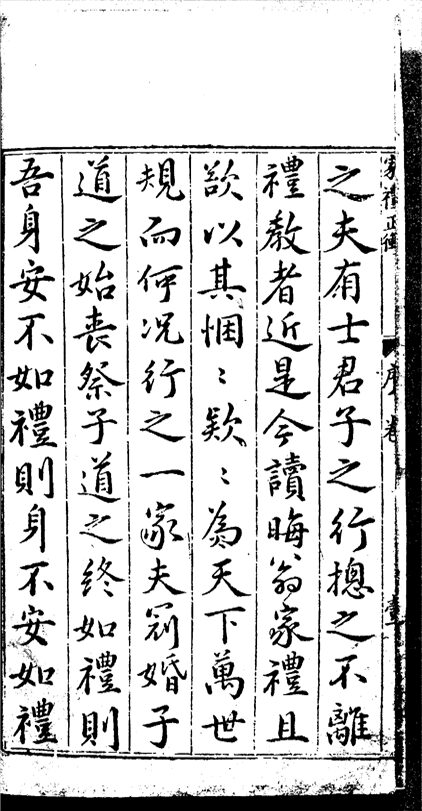 家禮正衡
序卷
之夫有士君子之行摠之不離
禮教者近是今讀晦翁家禮且
欲以其悃〻欵〻爲天下萬世
規而何况行之一家夫冠婚子
道之始喪祭子道之終如禮則
吾身安不如禮則身不安如禮